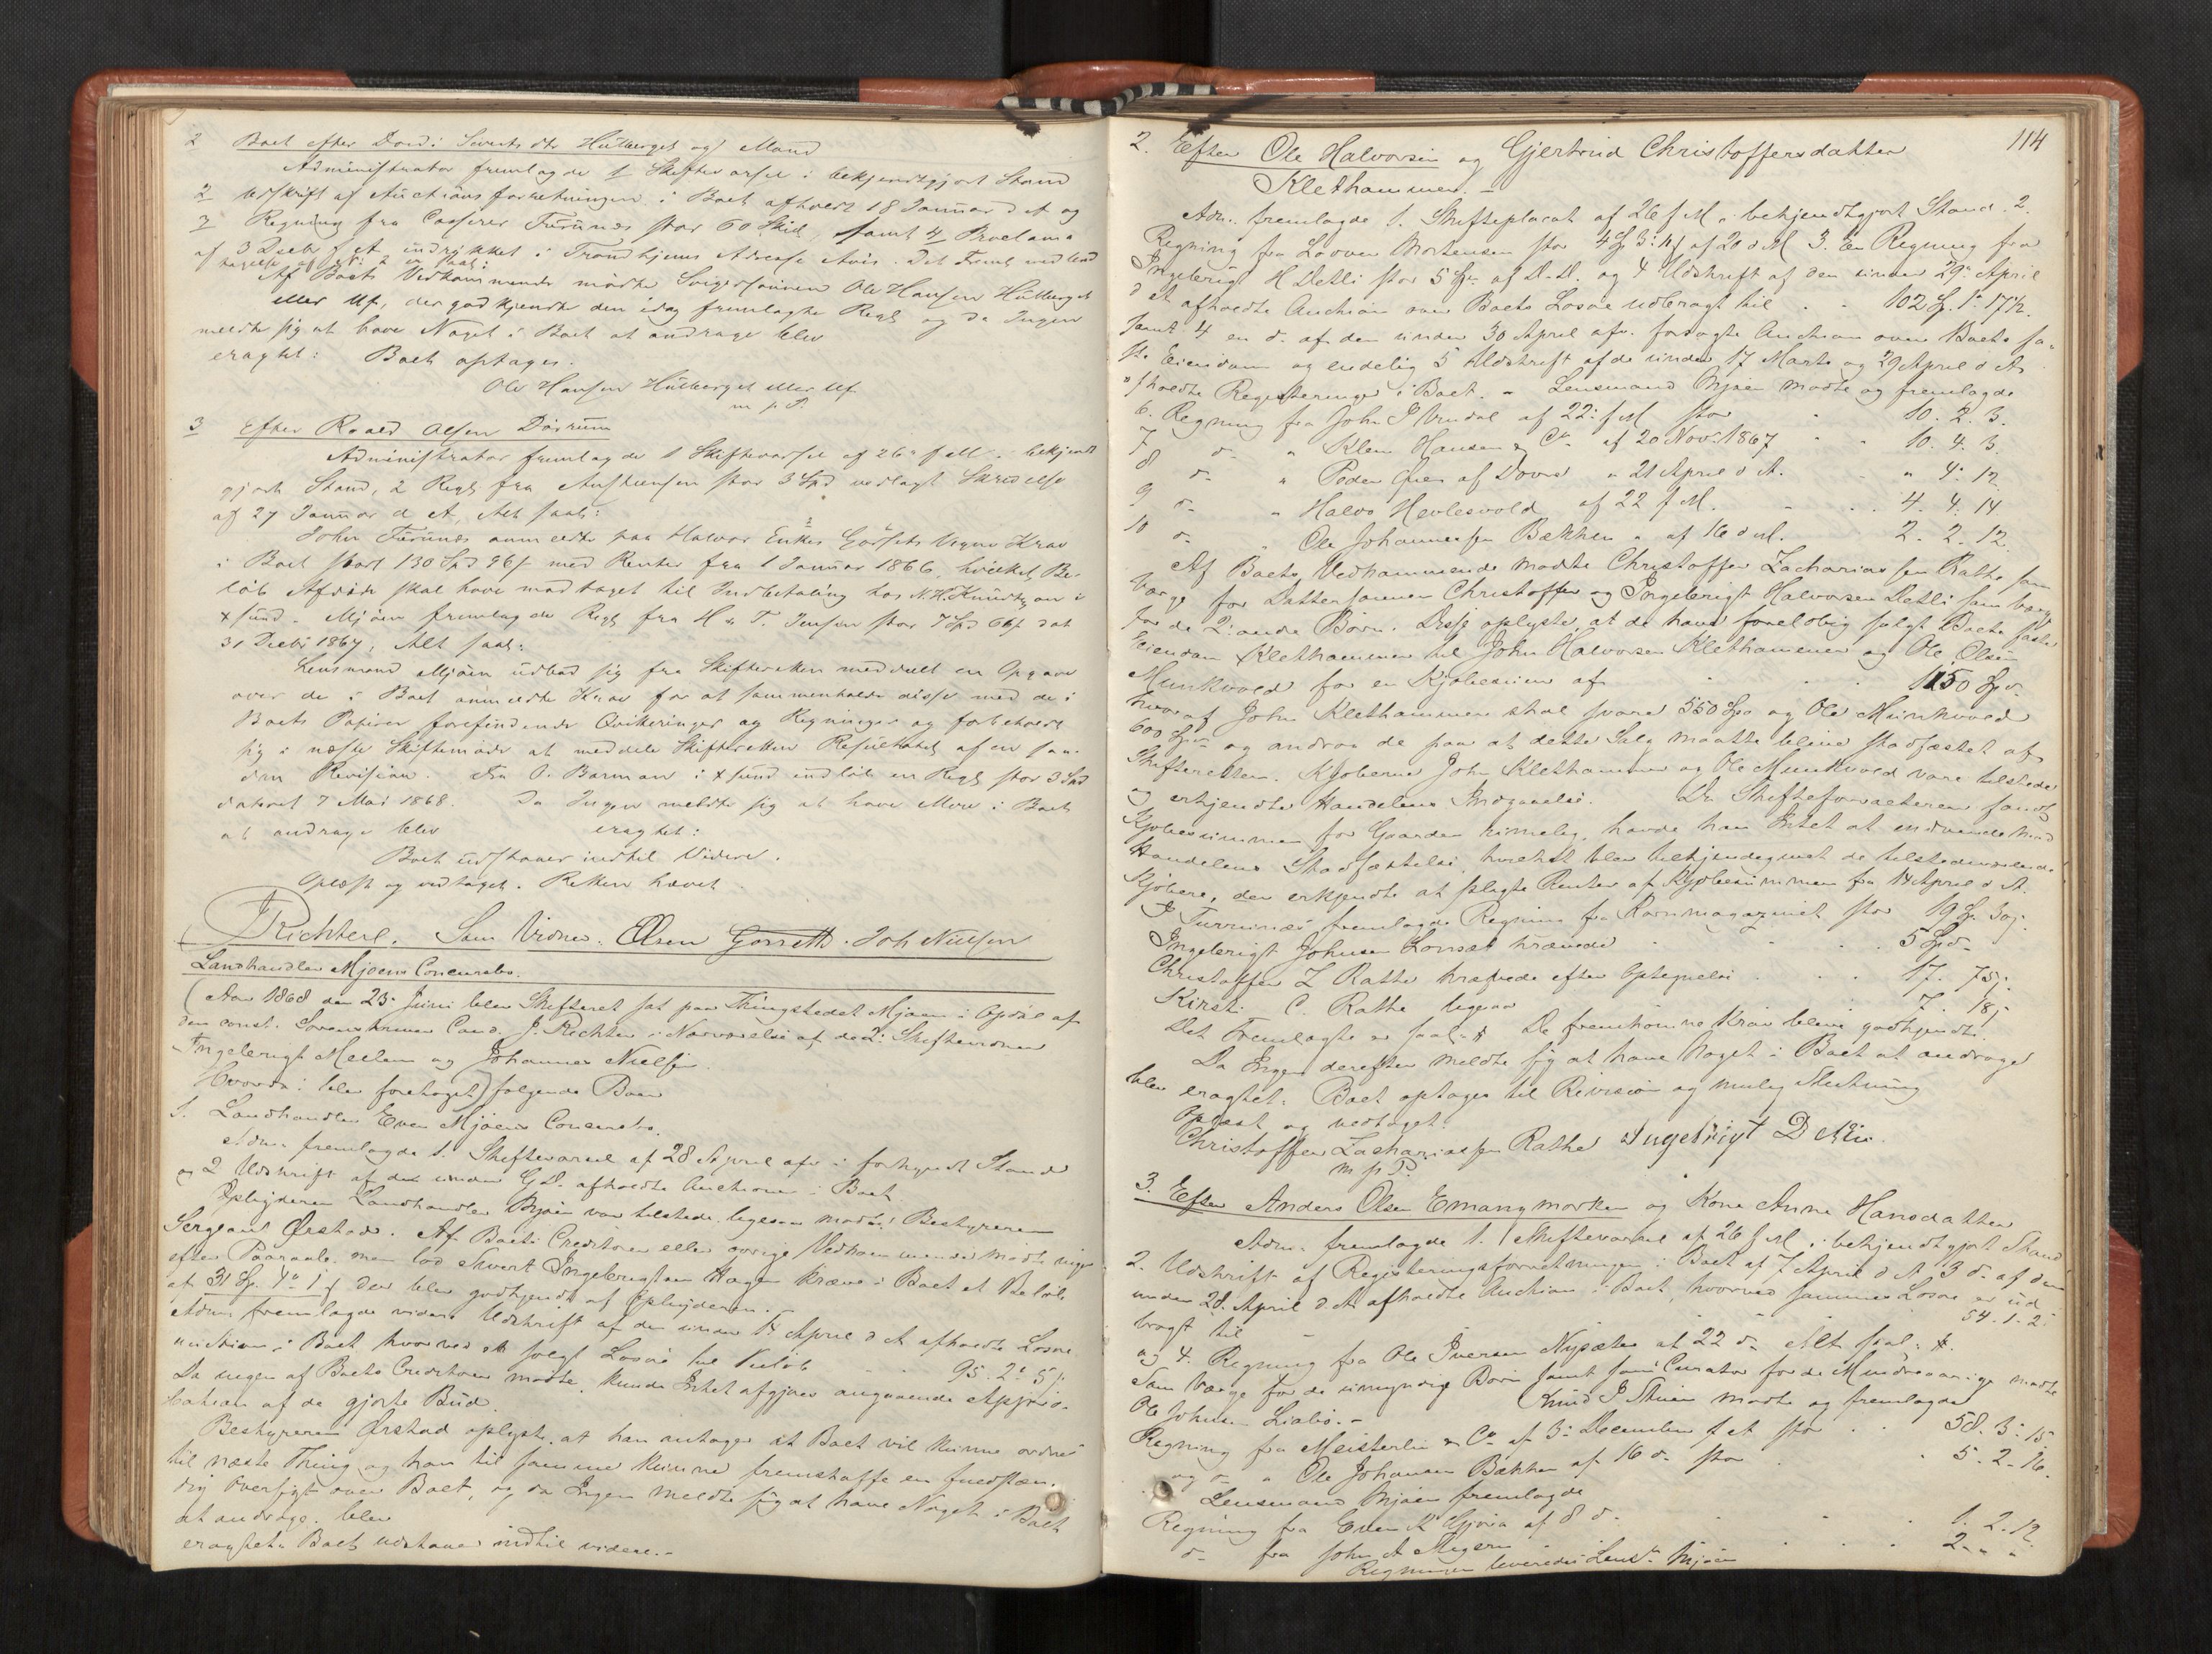 2 Boet efter Dord: Siverts dtr Hulberget og Mand
Administrator fremlagde 1 Skiftevarsel i bekjendtgjort Stand
2 Udskrift af Auctionsforretningen i Boet afholdt 18 Januar d A og
3 Regning fra Casserer Furunes stor 60 Skill, samt 4 Proclama
af 3 Decbr f A indrykket i Trondhjems Adresse Avis. Det Freml
Af Boets Vedkommende mødte Svigersønnen Ole Hansen Hulberget
eller Uf, der godkjendte den idag fremlagte Regl og da Ingen
meldte sig at have Noget i Boet at andrage blev
eragtet: Boet optages.
Ole Hansen Hulberget eller Uf
m p P.
3 Efter Roald Olsen Dørrum
Administrator fremlagde 1 Skiftevarsel af 26 f M i bekjendt
gjort Stand, 2 Regl fra stor 3 Spd vedlagt Skrivelse
af 27 Januar d A, Alt saal:
John Furunes anmeldte paa Halvor Enkes Vegne Krav
i Boet stort 130 Spd 96 s med Renter fra 1 Januar 1866, hvilket Be-
løb Afdøde skal have modtaget til Indbetaling hos N. H. Knudtzon i
Xsund. Mjøen fremlagde Regl fra H & T. Jensen stor 7 Spd 66 s dat
31 Decbr 1867, Alt saal:
Lensmand Mjøen udbad sig fra Skifteretten meddelt en Opgave
over de i Boet anmeldte Krav for at sammenholde disse med de i
Boets Papirer forefindende Qvitteringer og Regninger og forbeholdt
sig i næste Skiftemøde at meddele Skifteretten Resultatet af en saa-
dan Revision. Fra O. Barman i Xsund indløb en Regl stor 3 Spd
dateret 7 Mai 1868. Da Ingen meldte sig at have Mere i Boet
at andrage blev eragtet:
Boet udstaaer indtil Videre.
Oplæst og vedtaget. Retten hævet.
J Richter. Som Vidner. Olsen Gorseth. Joh Nielsen
Landhandler Mjøens Concursbo.
Aar 1868 den 23 Juni blev Skifteret sat paa Thingstedet Mjøen i Opdal af
den const. Sorenskriver Cand. J. Richter i Nærværelse af de 2 Skiftevidner
Ingebrigt Meslem og Johannes Nielsen.
Hvorda: blev foretaget følgende Boer
1. Landhandler Even Mjøens Concursbo.
Adm. fremlagde 1. Skiftevarsel af 28 April afv. i forkyndt Stand
og 2 Udskrift af den under G.D. afholdte Auction i Boet.
Opbyderen Landhandler Mjøen var tilstede, ligesom mødte Bestyreren
Sergeant Ørstad. Af Boets Creditorer eller øvrige Vedkommende mødte ingen
efter Paaraab. men lod Sivert Ingebrigtsen Hagen kræve i Boet et Beløb
af 31 Sp. 4 ort 1 s der blev godkjendt af Opbyderen.
Adm. fremlagde videre Udskrift af den under 14 April d A afholdte Løsøre
auction i Boet hvorved er solgt Løsøre til Beløb 95. 2. 5 s.
Da ingen af Boets Creditorer mødte, kunde Intet afgjøres angaaende Appro-
bation af de gjorte Bud.
Bestyreren Ørstad oplyste, at han antager at Boet vil kunne ordnes
til næste Thing og han til samme kunne fremskaffe en fuldstæn-
dig Oversigt over Boet, og da Ingen meldte sig at have Noget i Boet
at andrage, blev
eragtet: Boet udstaaer indtil videre.-
114
2. Efter Ole Halvorsen og Gjertrud Christoffersdatter
Klethammer. -
Adm. fremlagde 1. Skifteplacat af 26 f M. i bekjendtgjort Stand. 2.
Regning fra Mortensen stor 4 Sp 3: 11 s af 20 d M 3. En Regning fra
Ingebrigt H Detli stor 5 Sp. af D.D. og 4 Udskrift af den under 29 April
d A afholdte Auction over Boets Løsøre udbragt til 102 Sp. 1. 17 1/2.
samt 4 en d. af den under 30 April afv. forsøgte Auction over Boets fa-
ste Eiendom og endelig 5 Udskrift af de under 17 Marts og 29 April d A.
afholdte Registreringer i Boet. - Lensmand Mjøen mødte og fremlagde
6. Regning fra John J Vindal af 22. f M stor 10. 2. 3.
7 d. " Klem Hansen & Co af 20 Nov. 1867 10. 4. 3.
8 d. " Peder Øien af Dovre " 21 April d A. " 4. 12
9 d. " Halvo Hevlesvold af 22 f M. 4. 4. 14
10 d. " Ole Johannessen Bækken " af 16 d M. 2. 2. 12.
Af Boets Vedkommende mødte Christoffer Zachariassen Rathe som
Værge for Dattersønnen Christoffer og Ingebrigt Halvorsen Detli som Værge
for de 2 andre Børn. Disse oplyste, at de have foreløbig solgt Boets faste
Eiendom Klethammer til John Halvorsen Klethammer og Ole Olsen
Munkvold for en Kjøbesum af 1150 Spd.
hvoraf John Klethammer skal svare 550 Spd og Ole Munkvold
600 Spd og androg de paa at dette Salg maatte blive stadfæstet af
Skifteretten. Kjøberne John Klethammer og Ole Munkvold vare tilstede
og erkjendte Handelens Indgaaelse. Da Skifteforvalteren fandt
Kjøbesummen for Gaarden rimelig, havde han Intet at indvende mod
Handelens Stadfæstelse, hvilket blev tilkjendegivet de tilstedeværende
Kjøbere, der erkjendte at svare Renter af Kjøbesummen fra 14 April d A.
J Furunes fremlagde Regning fra Kornmagazinet stor 19 Sp. 30 s.
Ingebrigt Johnsen Lonset krævede 5 Spd.
Christoffer Z Rathe krævede efter Optegnelse 17. 75 s.
Kirsti C. Rathe ligesaa 7. 18 s
Det Fremlagte er saal. De fremkomne Krav bleve godkjendte.
Da Ingen derefter meldte sig at have Noget i Boet at andrage
blev eragtet: Boet optages til Revision og mulig Slutning
Oplæst og vedtaget.
Christoffer Zachariassen Rathe Ingebrigt Detli.
m p P.
3. Efter Anders Olsen Emangmorken og Kone Anne Hansdatter
Adm. fremlagde 1. Skiftevarsel af 26 f M. i bekjendtgjort Stand
2. Udskrift af Registreringsforretningen i Boet af 7 April d A 3 d. af den
under 28. April d A afholdte Auction i Boet, hvorved sammes Løsøre er ud
bragt til 54. 1. 2.
og 4. Regning fra Ole Iversen Nysæter af 22 d. Alt saal.
Som Værge for de umyndige Børn samt som Curator for de Mindreaarige mødte
Ole Johnsen Liabø. - Knud J Stuen mødte og fremlagde
Regning fra Meisterlin & Co af 3. December f A stor 58. 3. 15
og d. " Ole Johansen Bækken af 16 d. stor 5. 2. 16.
Lensmand Mjøen fremlagde
Regning fra Even K Gjøra af 8 d. 1. 2. 12
d. fra John A 2. " "
Regninger leveredes Lensm. Mjøen